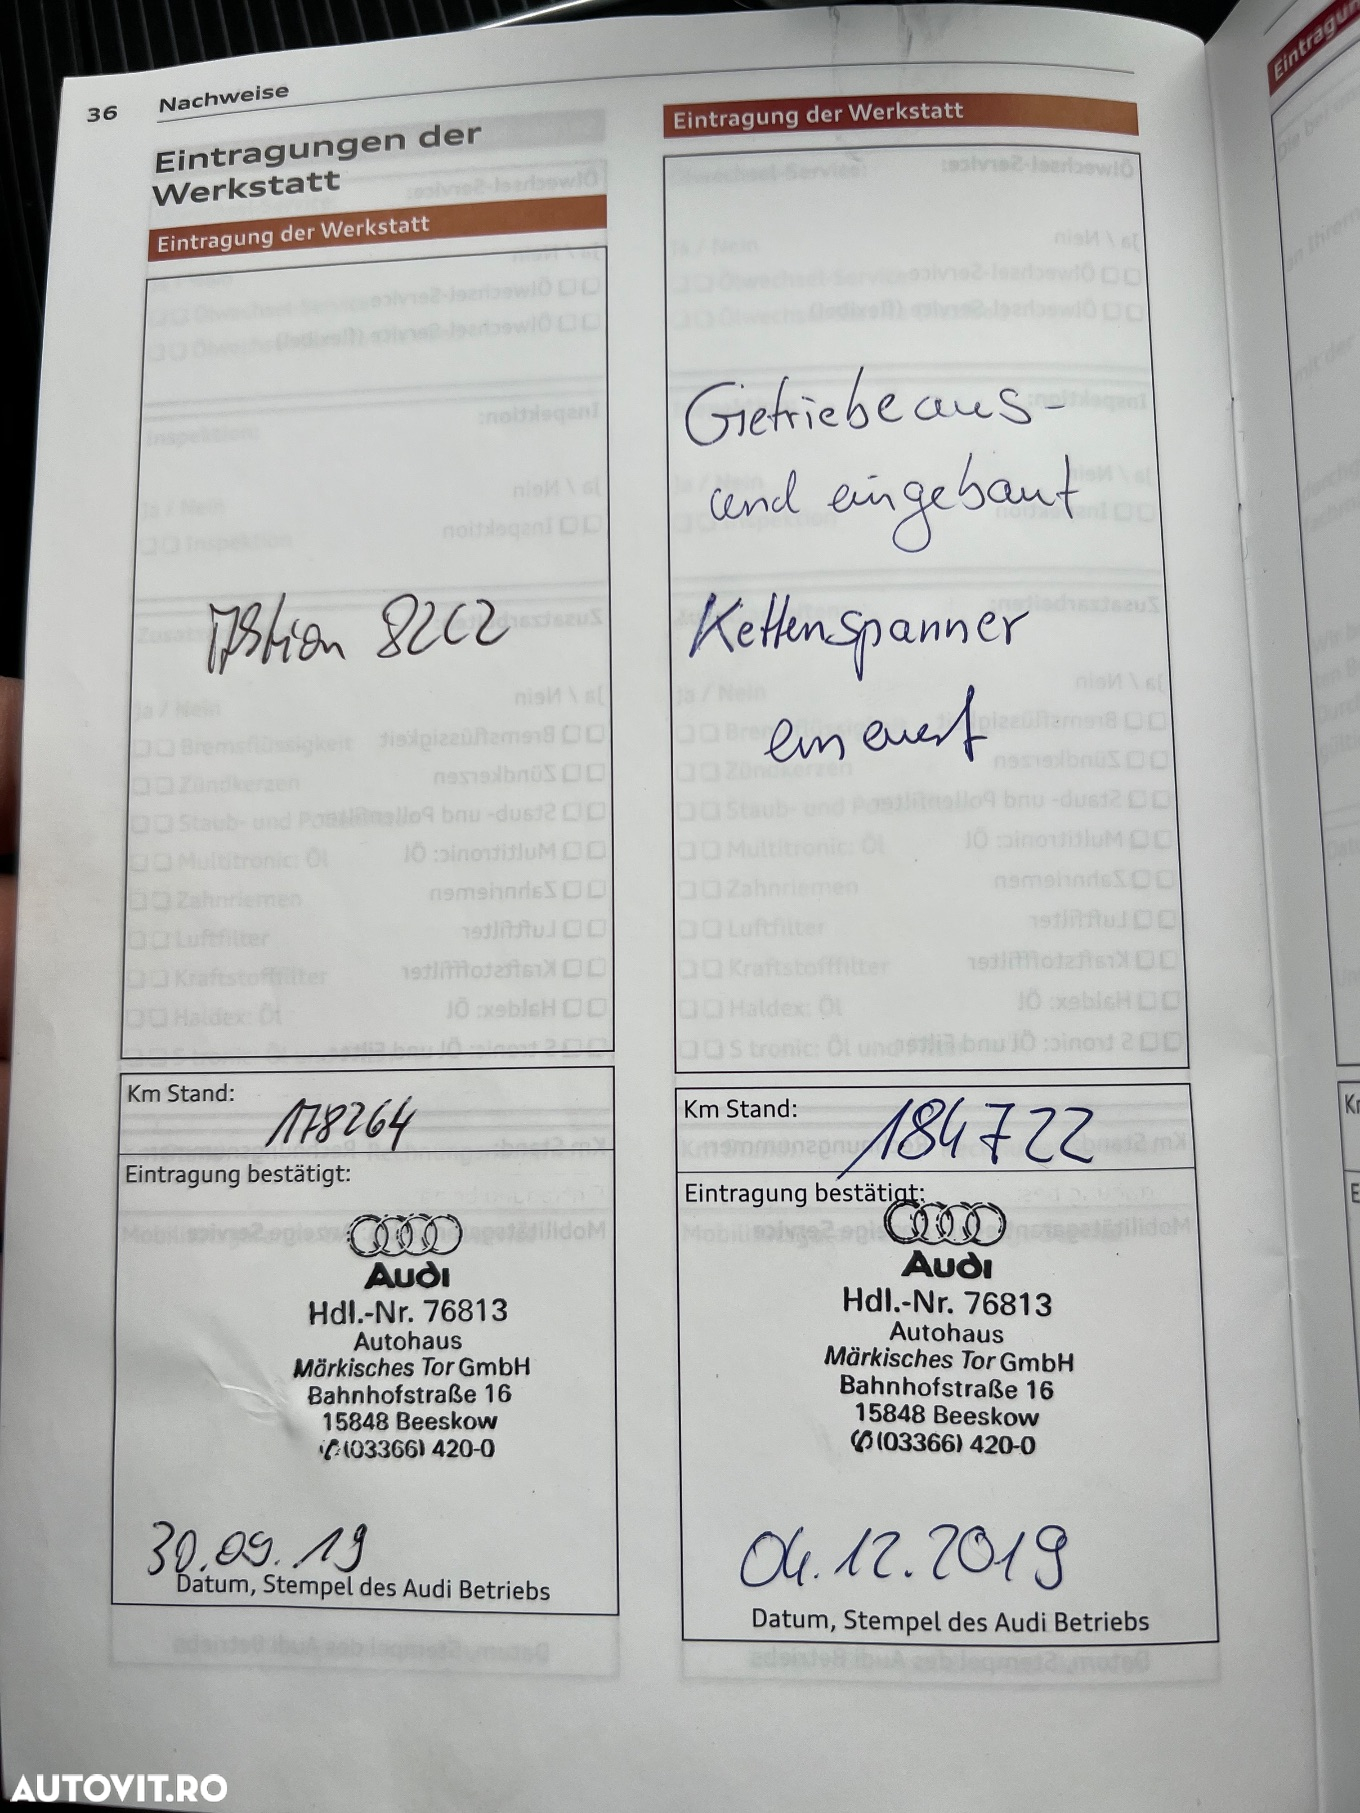 36 Nachweise
Eintragungen der
Werkstatt
Eintragung der Werkstatt
82C2
Km Stand:
178264
Eintragung bestätigt:
Audi
Hdl.-Nr. 76813
Autohaus
Märkisches Tor GmbH
Bahnhofstraße 16
15848 Beeskow
(03366) 420-0
30.09.19
Datum, Stempel des Audi Betriebs
Eintragung der Werkstatt
Getriebe aus-
und eingebaut
Kettenspanner
erneuert
Km Stand:
184722
Eintragung bestätigt:
Audi
Hdl.-Nr. 76813
Autohaus
Märkisches Tor GmbH
Bahnhofstraße 16
15848 Beeskow
(03366) 420-0
04.12.2019
Datum, Stempel des Audi Betriebs
AUTOVIT.RO